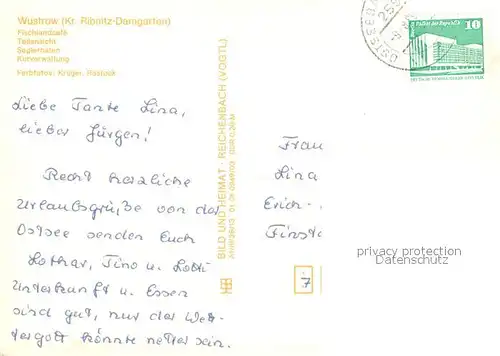 Wustrow (Kr. Ribnitz-Damgarten)
Fischlandcafé
Teilansicht
Seglerhafen
Kurverwaltung
Farbfotos: Krüger, Rostock
Liebe Tante Lina,
lieber Jürgen!
Recht herzliche
Urlaubsgrüße von der
Ostsee senden Euch
Lothar, Tino u. Lotti
Unterkunft u. Essen
sind gut, nur der Wet-
tergott könnte netter sein.
BILD UND HEIMAT · REICHENBACH (VOGTL)
OSTSEEBA
10
Palast der Republik
Frau
Lina
Erich-
Finste
7
privacy protection
Datenschutz